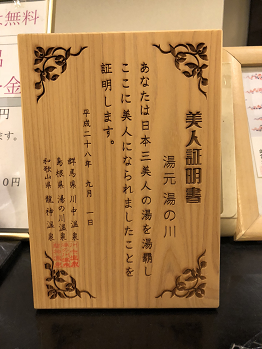 美人証明書
湯元 湯の川
あなたは日本三美人の湯を湯覇し
ここに美人になられましたことを
証明します。
平成二十八年 九月 一日
群馬県 川中温泉
島根県 湯の川温泉
和歌山県 龍神温泉
無料
金
円